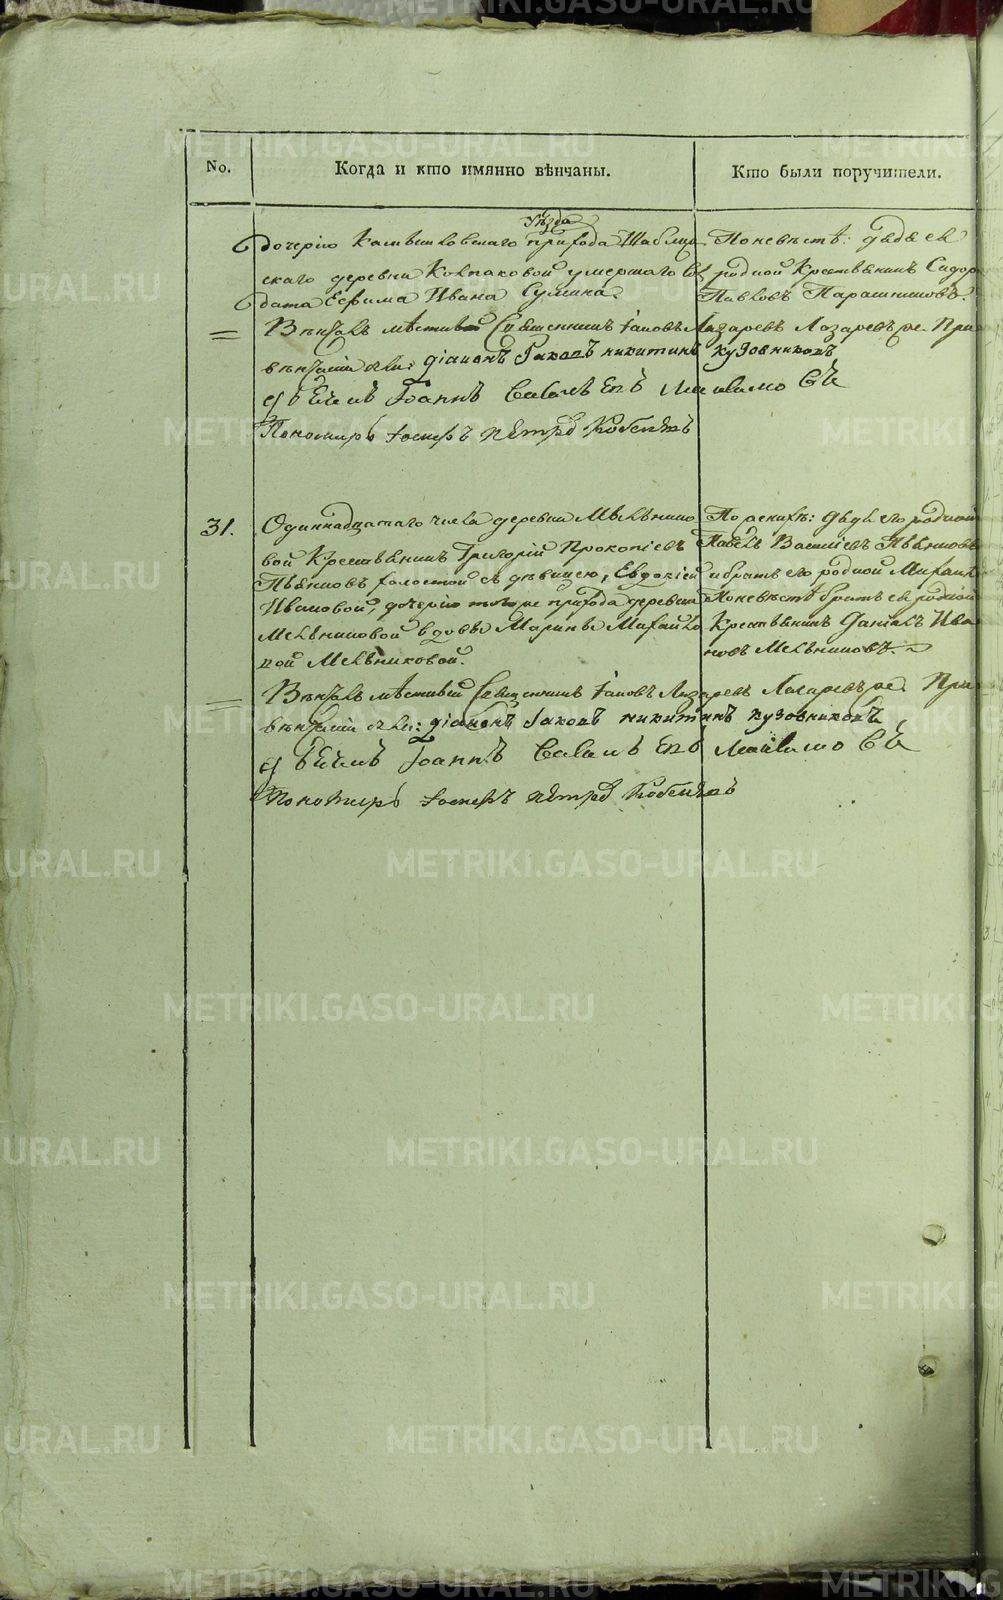 No.
Когда и кто имянно вѣнчаны.
Кто были поручители.
уѣзда
дочерію Камышловскаго прихода Шаблиш
скаго деревни Колпаковой умершаго Сол
дата Ефима Ивана Сумина.
Поневѣстѣ: дядя ея
родной Крестьянинъ Сидор
Павловъ Парашниковъ.
Вѣнчалъ мѣстный Священникъ Іаковъ Лазаревъ Лазаревъ же. При
вѣнчаніи были: діаконъ Іаковъ никитинъ кузовниковъ
Іоаннъ
Пономарь Іосифъ Петровъ
31.
Одиннадцатаго числа деревни Мѣльнико
вой Крестьянинъ Григорій Прокопіевъ
Пьянковъ холостой съ дѣвицею, Евдокіей
Ивановой, дочерію того же прихода деревни
Мельниковой вдовы Марины Михайло
вой Мельниковой.
По женихѣ: дядя его родной
Павелъ Василіевъ Пьянковъ
и братъ его родной Михаил
Поневѣстѣ братъ ея родной
Крестьянинъ Даніилъ Ива
новъ Мельниковъ.
Вѣнчалъ мѣстный Священникъ Іаковъ Лазаревъ Лазаревъ же. При
вѣнчаніи были: діаконъ Іаковъ никитинъ кузовниковъ
Іоаннъ
Пономарь Іосифъ Петровъ
METRIKI.GASO-URAL.RU